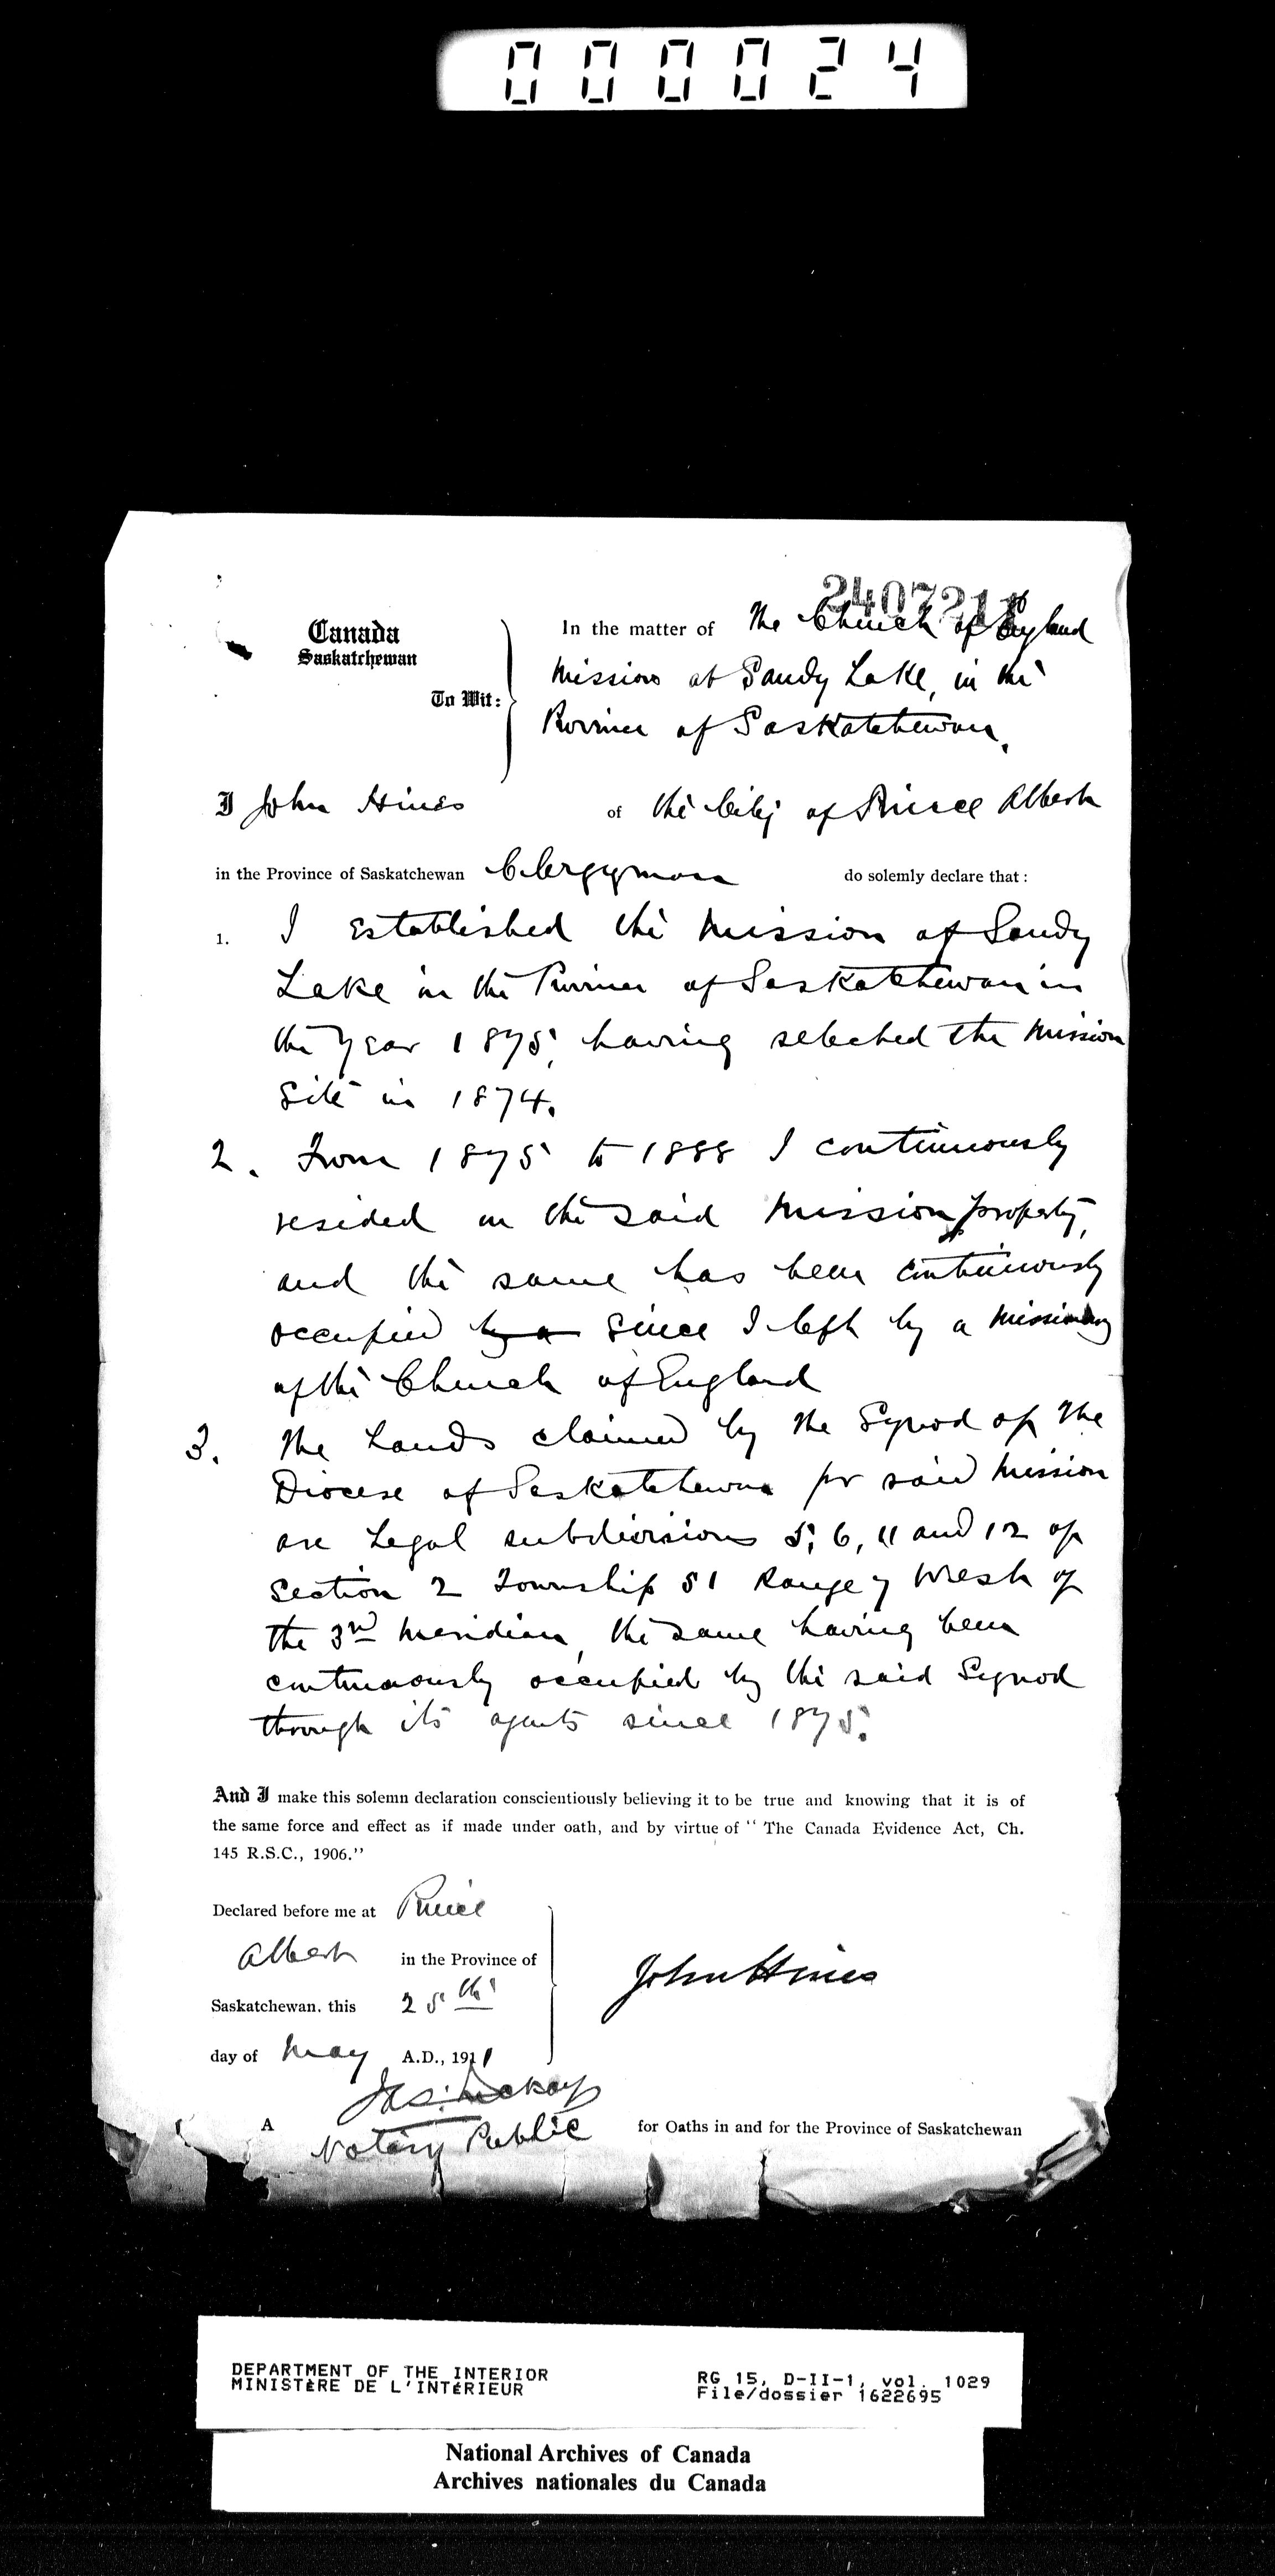 000024
2407211
Canada
Saskatchewan
To Wit:
In the matter of the Church of England
Mission at Sandy Lake, in the
Province of Saskatchewan,
I John Hines of the City of Prince Albert
in the Province of Saskatchewan Clergyman do solemly declare that:
1. I established the Mission of Sandy
Lake in the Province of Saskatchewan in
the year 1875, having selected the Mission
Site in 1874.
2. From 1875 to 1888 I continuously
resided on the said Mission property,
and the same has been continuously
occupied by a since I left by a Missionary
of the Church of England
3. The Lands claimed by the Synod of the
Diocese of Saskatchewan for said Mission
are Legal subdivisions 5, 6, 11 and 12 of
Section 2 Township 51 Range 7 West of
the 3rd Meridian, the same having been
continuously occupied by the said Synod
through its agents since 1875.
And I make this solemn declaration conscientiously believing it to be true and knowing that it is of
the same force and effect as if made under oath, and by virtue of "The Canada Evidence Act, Ch.
145 R.S.C., 1906."
Declared before me at Prince
Albert in the Province of
Saskatchewan, this 25th
day of May A.D., 1911
John Hines
Jas. McKay
A Notary Public for Oaths in and for the Province of Saskatchewan
DEPARTMENT OF THE INTERIOR
MINISTÈRE DE L'INTÉRIEUR
RG 15, D-II-1, vol. 1029
File/dossier 1622695
National Archives of Canada
Archives nationales du Canada